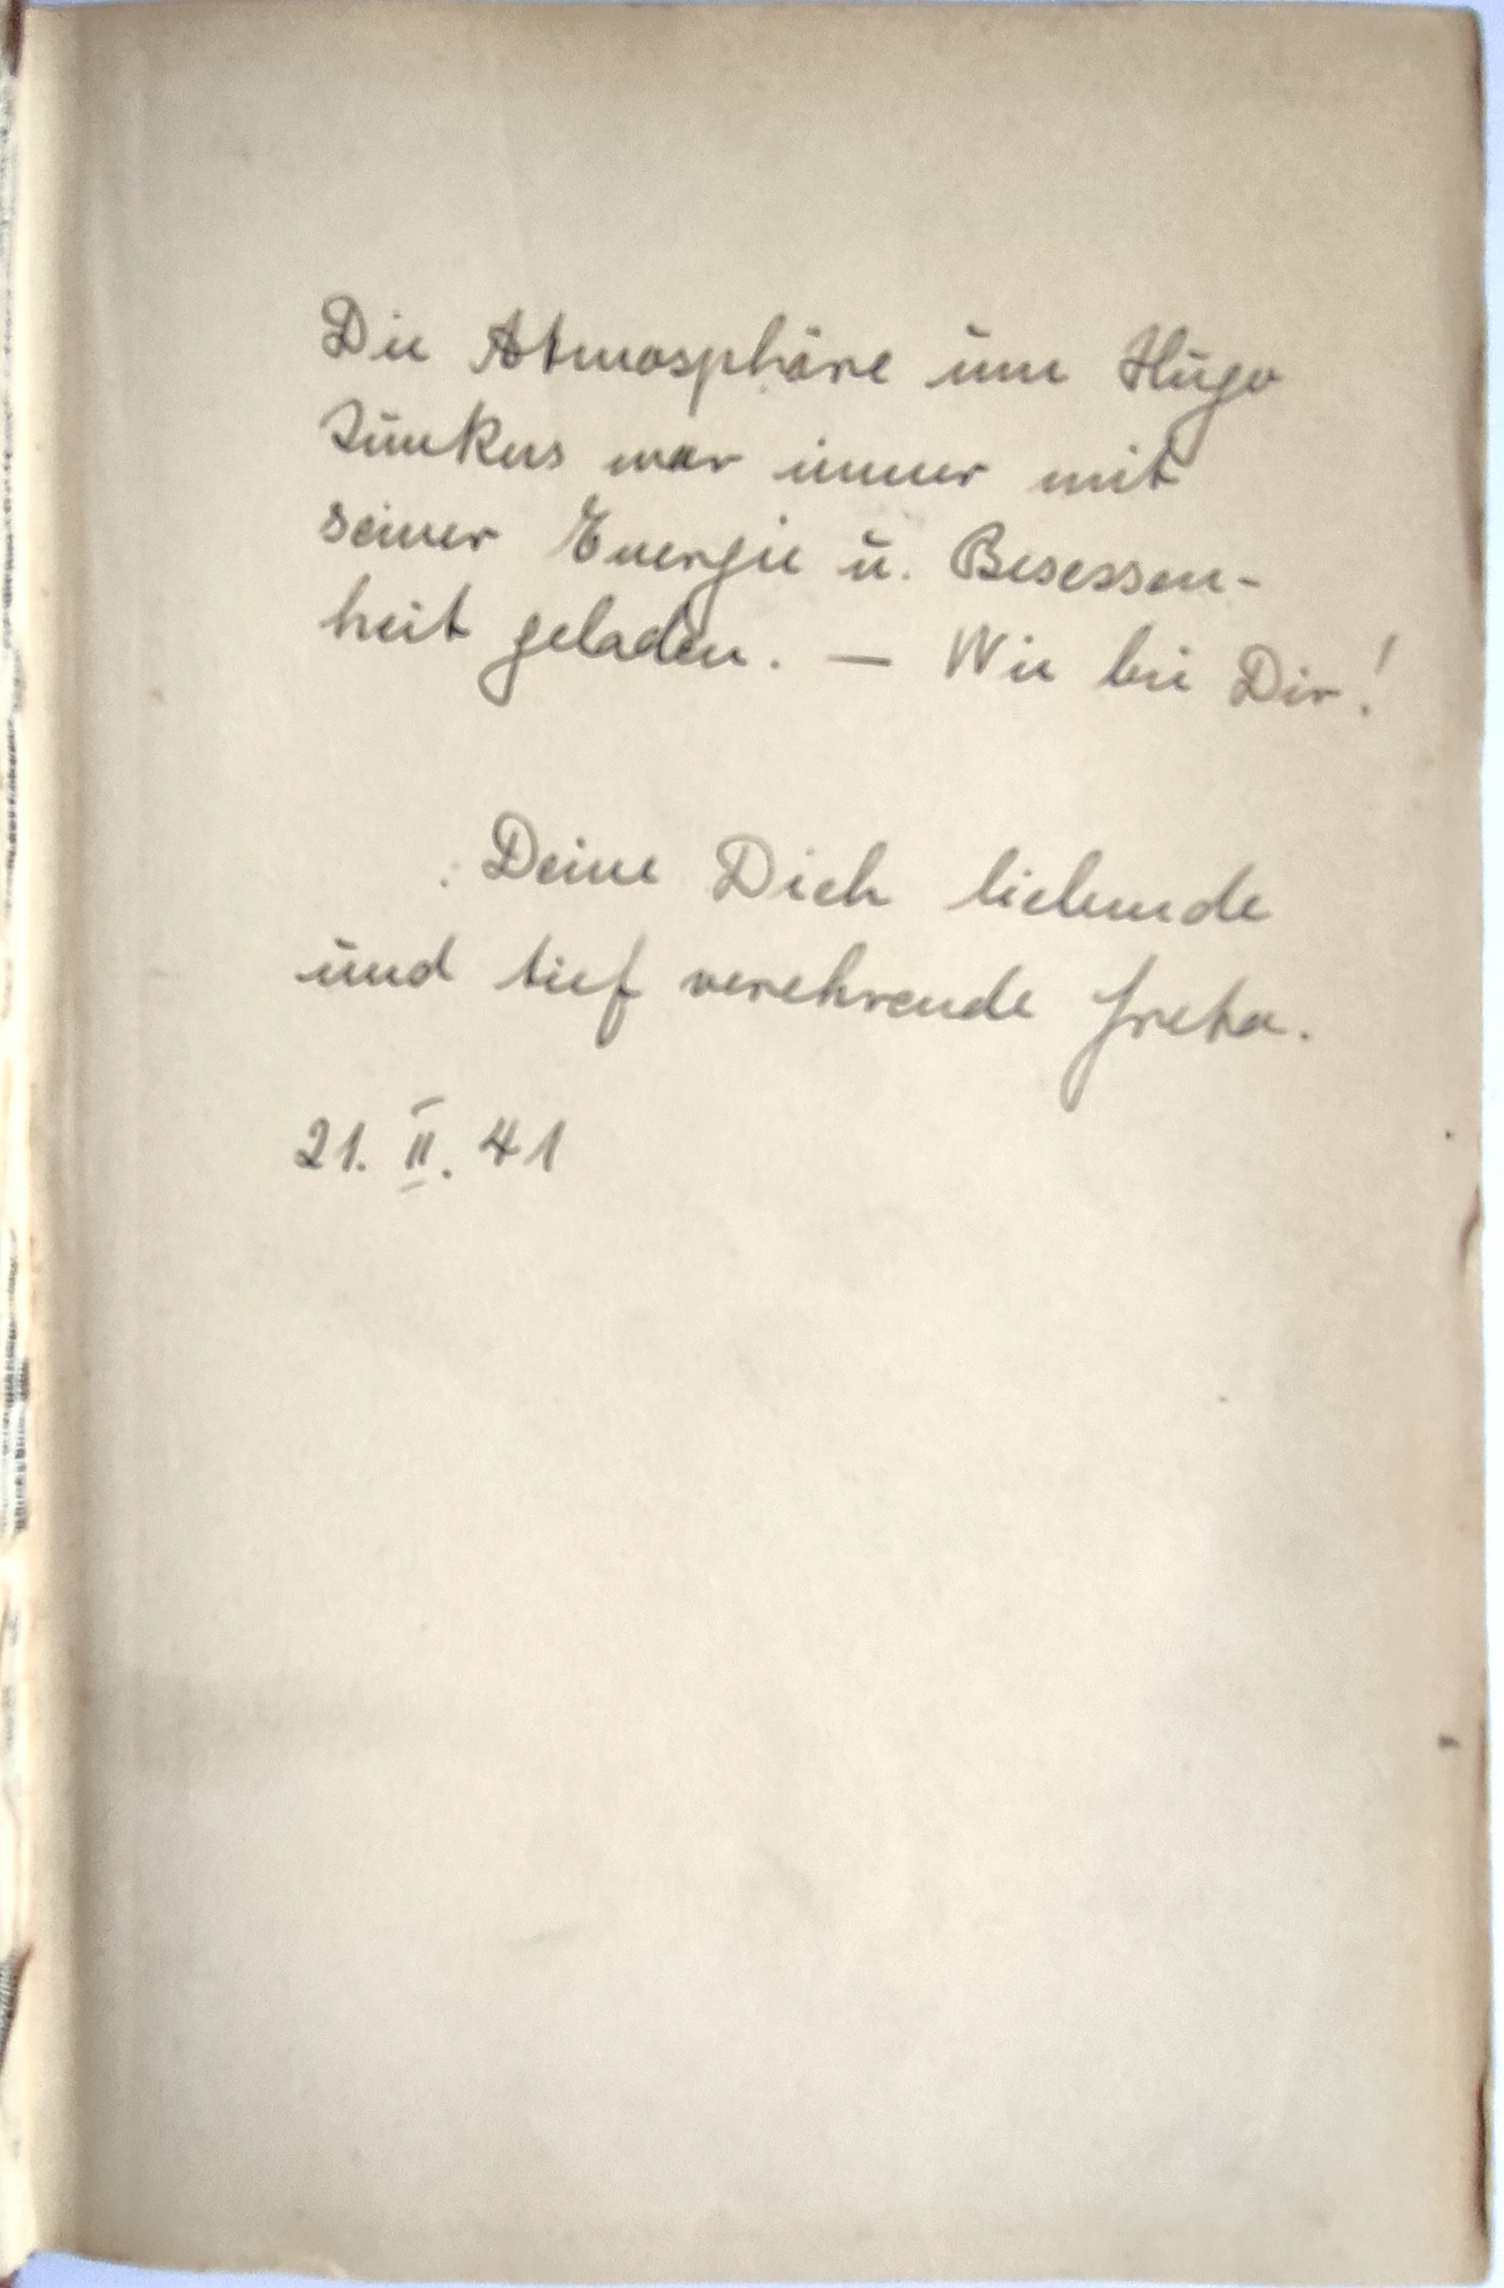 Die Atmosphäre um Hugo
Junkers war immer mit
seiner Energie u. Besessen-
heit geladen. — Wie bei Dir!
Deine Dich liebende
und tief verehrende Greta.
21. II. 41